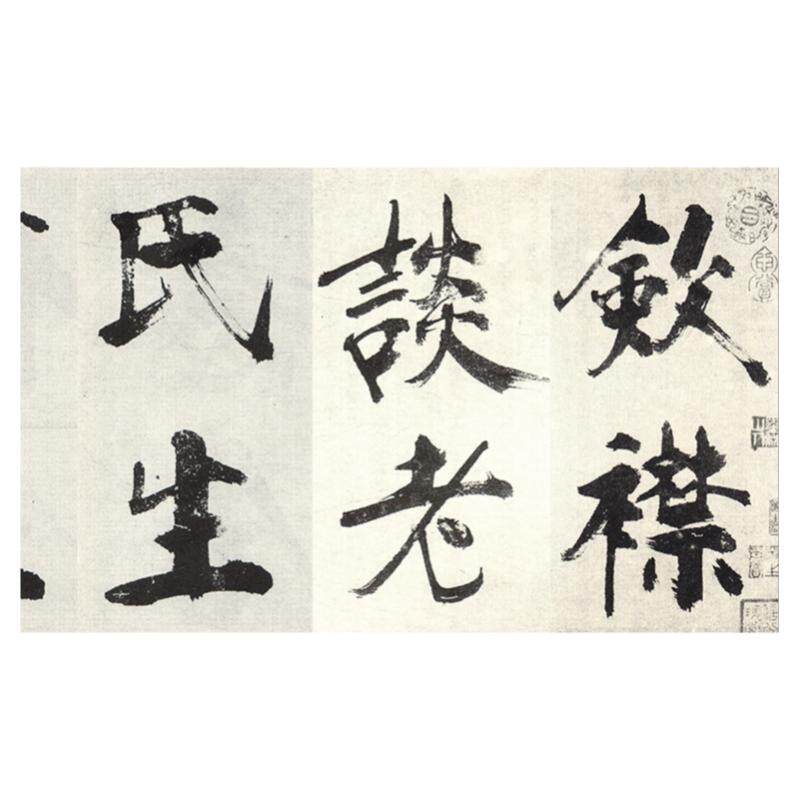 斂襟
談老
氏生